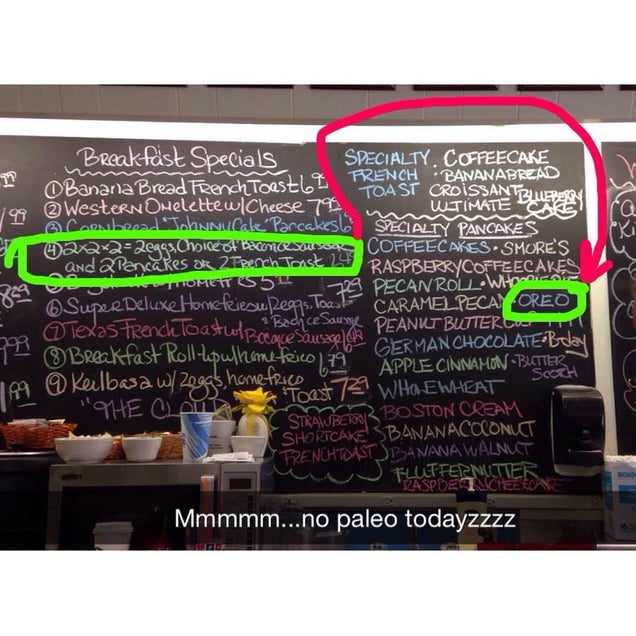 Breakfast Specials
① Banana Bread French Toast
② Western Omelette w/ Cheese 7
③ Cornbread "Johnny Cake" Pancakes
④ 2x2x2 = 2eggs, Choice of
and 2 Pancakes or 2 French Toast
5
7.29
⑥ Super Deluxe Homefries w/ 2eggs, Toast
⑦ Texas French Toast w/
⑧ Breakfast Roll-Up w/ homefries
⑨ Keilbasa w/ 2eggs, homefries
Toast 7.29
"THE
STRAWBERRY
SHORTCAKE
FRENCH TOAST
SPECIALTY
FRENCH
TOAST
: COFFEECAKE
: BANANABREAD
CROISSANT
ULTIMATE
BLUEBERRY
CAKE
SPECIALTY PANCAKES
COFFEECAKES • SMORE'S
RASPBERRY COFFEECAKES
PECAN ROLL •
CARAMEL PECAN OREO
PEANUT BUTTER
GERMAN CHOCOLATE • B-day
APPLE CINNAMON • BUTTER
SCOTCH
WHOLE WHEAT
BOSTON CREAM
BANANA COCONUT
BANANA WALNUT
FLUFFERNUTTER
RASPBERRY CHEESECAKE
Mmmmm...no paleo todayzzzz